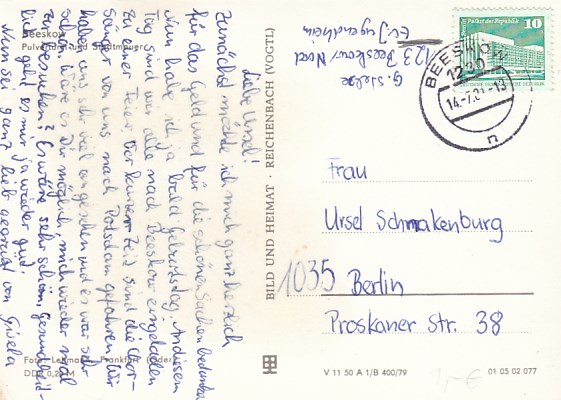 Beeskow
Pulverturm und Stadtmauer
Liebe Ursel!
Zunächst möchte ich mich ganz herzlich
für das Geld und für die schönen Sachen bedanken.
Nun habe ich ja bald Geburtstag. An diesem
Tag sind wir alle nach Beeskow eingeladen
zu einer Feier. Vor kurzer Zeit sind die Chor-
sänger von uns nach Potsdam gefahren. Wir
haben uns sehr viel angesehen und es war sehr
schön. Wäre es Dir möglich, mich wieder mal
zu besuchen? Es wäre sehr schön, gesundheit-
lich geht es mir ja wieder gut.
Nun sei ganz lieb gegrüßt von Gisela
Foto: Frankfurt (Oder)
DDR 0,20 M
BILD UND HEIMAT · REICHENBACH (VOGTL)
G. Sielse
123 Beeskow/Nord
Ev. Jugendheim
Palast der Republik
10
DDR
BEESKOW
1230
14.-7.81-13
n
Frau
Ursel Schmakenburg
1035 Berlin
Proskauer Str. 38
V 11 50 A 1/B 400/79
01 05 02 077
1,-€